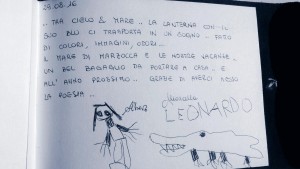 29.08.16
.. TRA CIELO & MARE .. LA LANTERNA CON IL
SUO BLU CI TRASPORTA IN UN SOGNO .. FATO
DI COLORI, IMMAGINI, ODORI ..
IL MARE DI MARZOCCA E LE NOSTRE VACANZE ..
UN BEL BAGAGLIO DA PORTARE A CASA .. E
ALL'ANNO PROSSIMO .. GRAZIE DI AVERCI
LA POESIA ..
LEONARDO